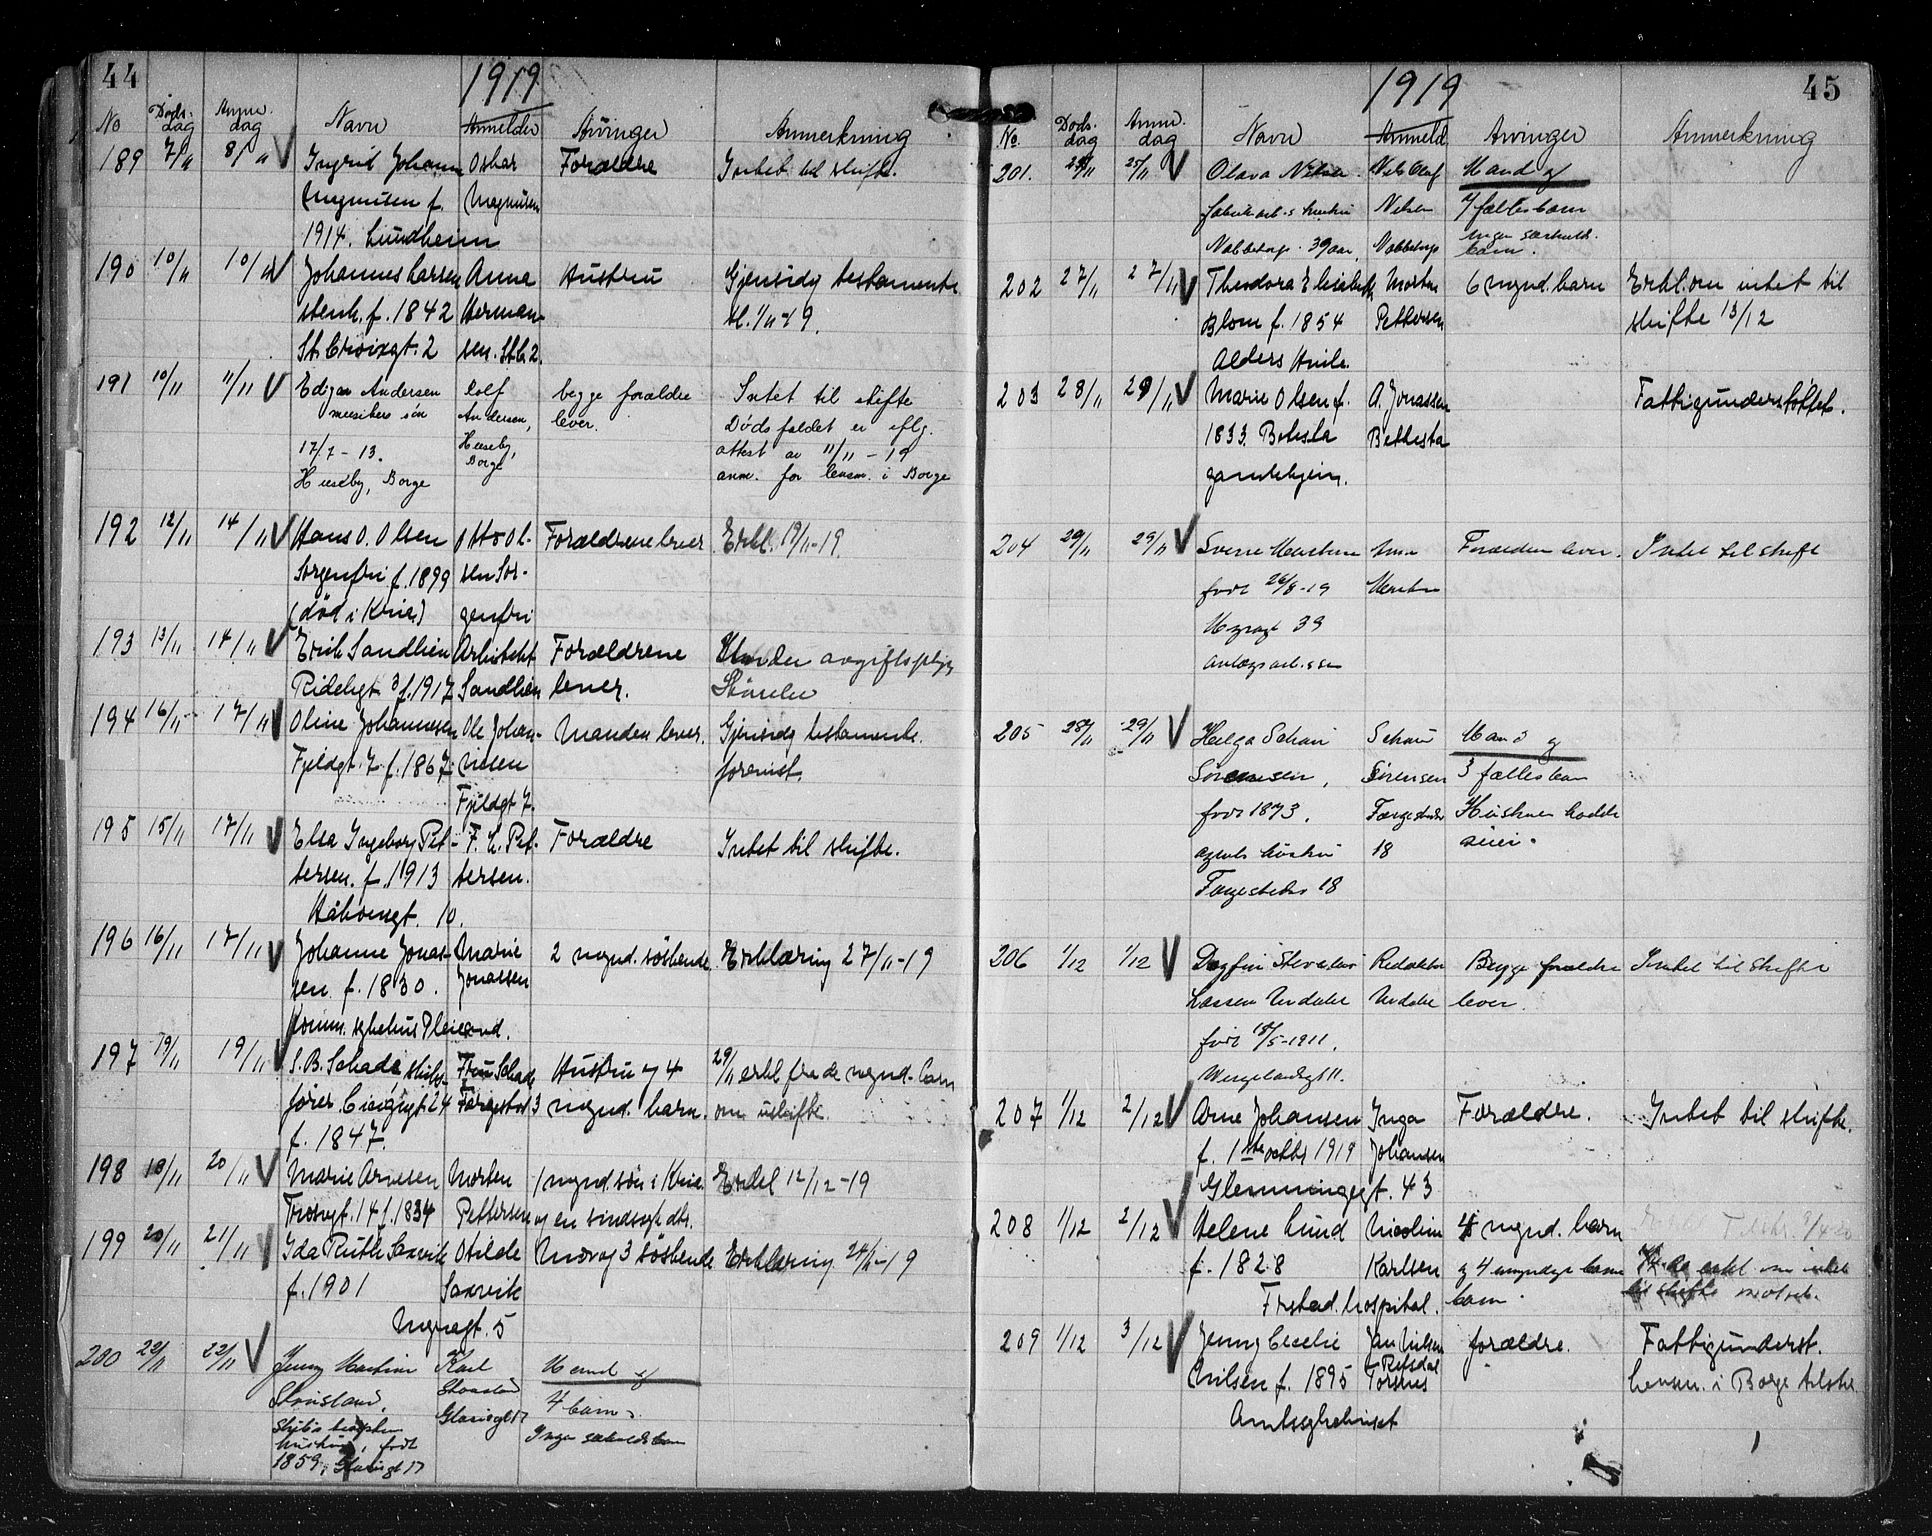 44
1919
No Døds-dag Anm.dag Navn Anmelder Arvinger Anmerkning
189 7/11 8/11 V Ingrid Johanne Oskar Forældre Intet til skifte.
Magnusen f. Magnusen
1914. Lundheim
190 10/11 10/11 V Johannes Larsen Anna Hustru Gjensidig testamente
stenh. f. 1842 Herman- tl. 1/11-19.
St. Croixgt. 2 sen. St.C. 2.
191 10/11 11/11 V Edgar Andersen Rolf begge forældre Intet til skifte
musikers søn Andersen, lever. Dødsfaldet er iflg.
17/7 - 13. Huseby, attest av 11/11 - 19
Huseby, Borge Borge anm. for lensm. i Borge
192 12/11 14/11 V Hans O. Olsen Otto Ol- Forældrene lever Erkl. 19/11-19.
Sorgenfri f. 1899 sen Sor-
(død i Kria) genfri
193 13/11 14/11 V Erik Sandlien Arkitekt Forældrene Under avgiftspligtig
Ridelgt 3 f. 1917 Sandlien lever. Størrelse
194 16/11 17/11 V Oline Johannesen Ole Johan- Manden lever. Gjensidig testamente.
Fjeldgt. 7. f. 1867. nesen forevist.
Fjeldgt 7.
195 15/11 17/11 V Elsa Ingeborg Pet- F. H. Pet- Forældre Intet til skifte.
tersen. f. 1913 tersen.
Haakonsgt. 10.
196 16/11 17/11 V Johanne Jonas- Marie 2 mynd. søskende Erklæring 27/11-19
sen f. 1830. Jonassen
Komm. sykehus Pleieand.
197 19/11 19/11 V S. B. Schade, skibs- Fru Schade Hustru og 4 29/11 erkl fra de mynd. barn
fører Cicigngt. 24 Færgestad 3 mynd. barn. om uskifte.
f. 1847.
198 18/11 20/11 V Marie Arnesen Morten 1 mynd. søn i Kria. Erkl 12/12-19
Trosvgt. 14 f. 1834 Pettersen og en sindssyk dtr.
199 20/11 21/11 V Ida Ruth Saxvik Otilde Mor og 3 søskende Erklæring 24/11-19
f. 1901 Saxvik
Nygaardsgt. 5
200 22/11 22/11 V Jenny Martine Karl Mand og
Stousland, Stousland 4 barn.
Skibskaptein Glacisgt 17 Ingen særkulds. barn
hustru, født
1859, Glacisgt 17
45
1919
No. Døds-dag Anm.dag Navn Anmeld. Arvinger Anmerkning
201. 24/11 25/11 V Olava Nilsen Nils Olaf Mand og
fabrikarb.s hustru Nilsen 7 fællesbarn
Nabbetorp. 39 aar, Nabbetorp Ingen særkulds.
barn.
202 27/11 27/11 V Theodora Elisabeth Morten 6 mynd. barn Erkl. om intet til
Blom f. 1854 Pettersen skifte 13/12
Alders Hvile.
203 28/11 29/11 V Marie Olsen f. A. Jonassen Fattigunderstøttet.
1833. Betesta Bethesta
gamlehjem.
204 29/11 29/11 V Sverre Forældre lever. Intet til skifte
født 26/8-19
39
anlægsarb. søn
205 28/11 29/11 V Helga Schau Schau Mand og
Sørensen, Sørensen 3 fællesbarn
født 1873. Færgestedet Hustruen hadde
agents hustru 18 særeie.
Færgestedet 18
206 1/12 1/12 V Dagfin Redaktør Begge forældre Intet til skifte
Larsen Undahl Undahl lever.
født 18/5-1911.
Wergelandsgt 11.
207 1/12 2/12 V Arne Johansen Inga Forældre. Intet til skifte.
f. 1ste oktbr 1919 Johansen
Glemmengegt. 43
208 1/12 2/12 V Helene Lund Nicoline 4 mynd. barn
f. 1828 Karlsen og 4 umyndige barne erkl om intet
Frstad. hospital. barn. til skifte
209 1/12 3/12 V Jenny Cecelie Jan Nilsen forældre. Fattigunderst.
Nilsen f. 1895 Refsdal Lensm. i Borge tilskr.
Torsnes
Amtssykehuset